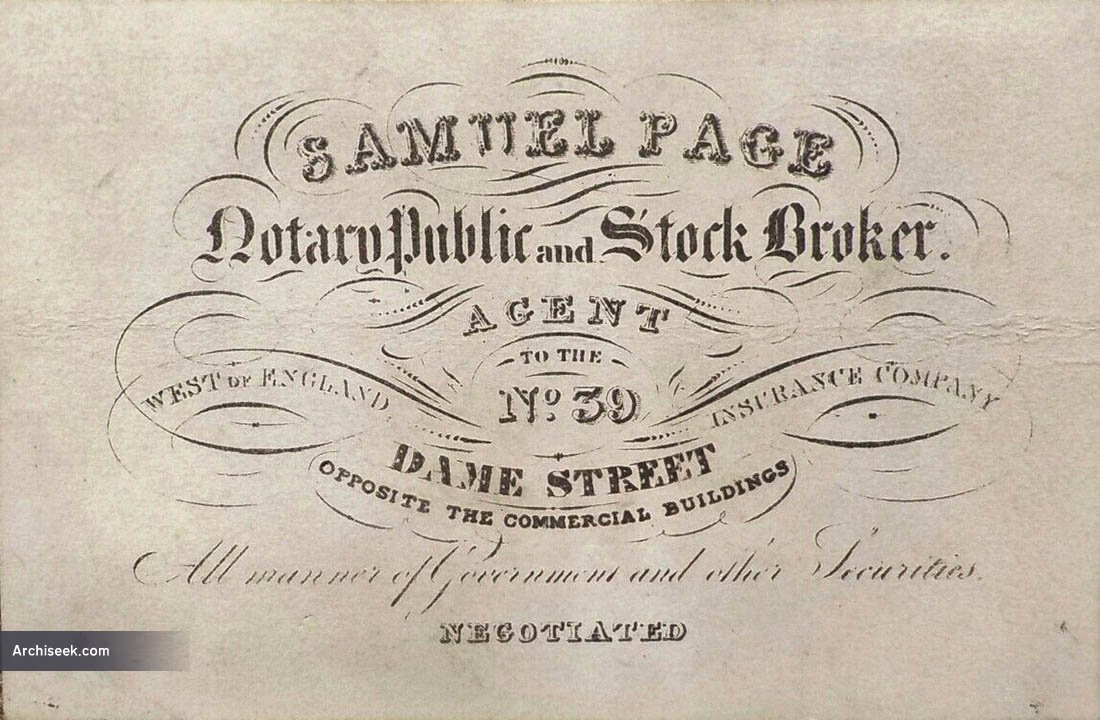 SAMUEL PAGE
Notary Public and Stock Broker.
AGENT
TO THE
WEST OF ENGLAND INSURANCE COMPANY
No 39
DAME STREET
OPPOSITE THE COMMERCIAL BUILDINGS
All manner of Government and other Securities.
NEGOTIATED
Archiseek.com